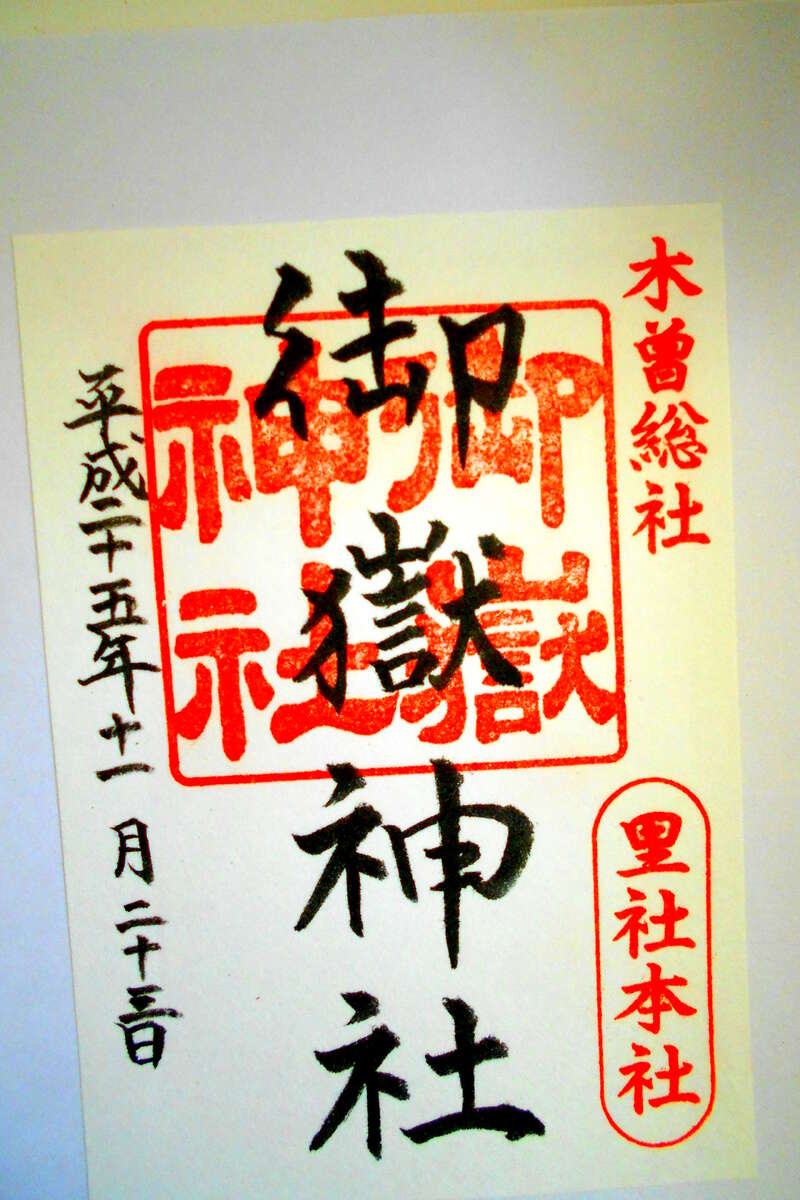 木曽総社
里社本社
御嶽神社
御嶽
神社
平成二十五年十一月二十三日